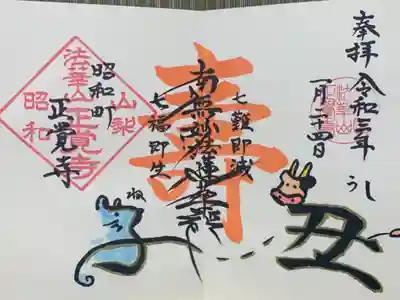 奉拝
令和三年
一月二十四日
うし
丑
七難即滅
南無妙法蓮華経
七福即生
壽
昭和町
正覚寺
ね
法華山正覚寺
山梨
昭和